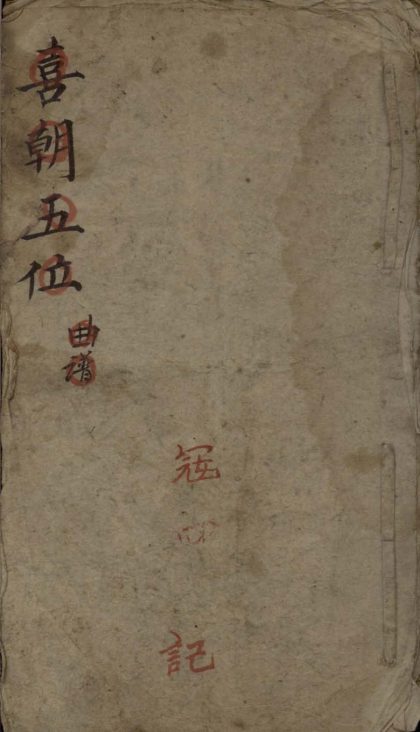 喜朝五位
曲譜
記